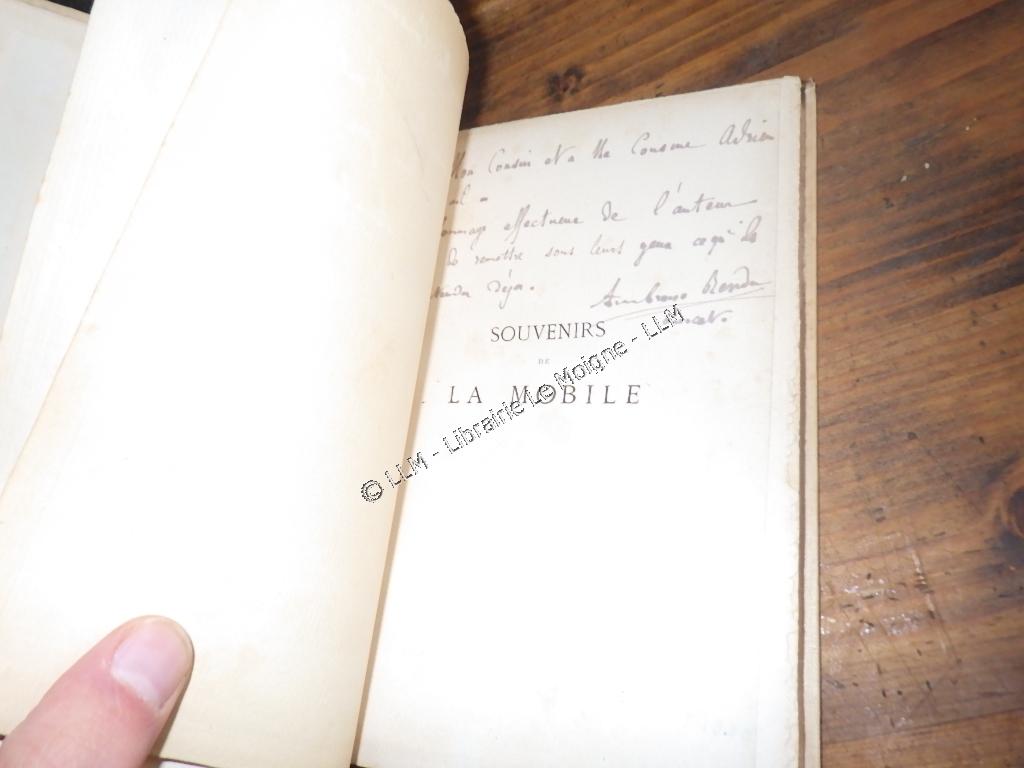 Mon Cousin et a Ma Cousine Adrien
effectueux de l'auteur
remettre sous leurs yeux ce qu'ils
déja.
Ambroise Rendu
SOUVENIRS
DE
LA MOBILE
© LLM - Librairie Le Moigne - LLM